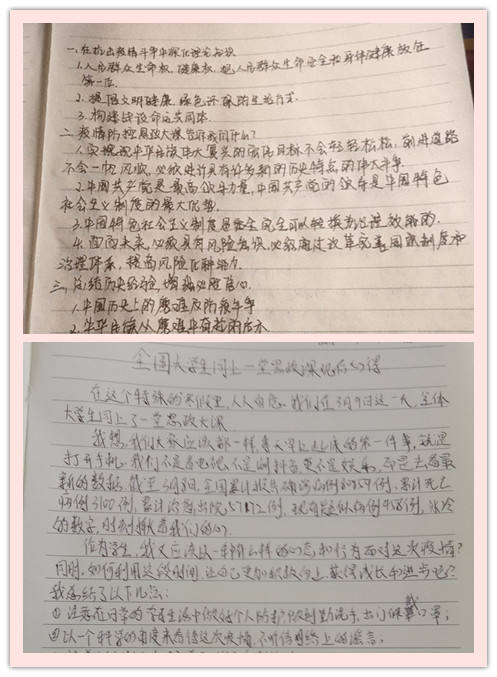 一、在抗击疫情斗争中深化理论认识
1.人民群众生命权、健康权,把人民群众生命安全和身体健康放在
第一位.
2.提倡文明健康、绿色环保的生活方式.
3.构建
命运共同体.
二、疫情防控思政大课告诉我们什么?
1.实现中华民族伟大复兴的宏伟目标不会轻轻松松,前进道路
不会一帆风顺,必须进行具有许多新的历史特点的伟大斗争.
2.中国共产党是最高领导力量,中国共产党的领导是中国特色
社会主义制度的最大优势.
3.中国特色社会主义制度是完全可以转换为治理效能的.
4.面向未来,必须具有风险意识,必须通过改革完善国家制度和
治理体系,提高风险化解能力.
三、总结历史经验,增强必胜信心.
1.中国历史上的磨难及防疫斗争
2.中华民族从磨难中奋起的启示
全国大学生同上一堂思政课观后心得
在这个特殊的寒假里,人人自危。我们在3月9日这一天,全体
大学生同上了一堂思政大课
我想,我们大家应该都一样,每天早上起床的第一件事,就是
打开手机。我们不是看电视,不是刷抖音更不是娱乐,而是去看最
新的数据,截至3月
日,全国累计报告确诊病例
例,累计死亡
病例3100例,累计治愈出院57
2例,现有疑似病例458例,冰冷
的数字,时刻揪着我们的心.
作为学生,我又应该以一种什么样的心态和行为面对这次疫情?
同时,如何利用这段时间,让自己更加积极向上,获得成长和进步呢?
我总结了以下几点:
①注意在日常的
生活中做好个人防护,做到勤洗手,出门佩戴口罩;
②以一个科学的角度来看待这次疫情,不听信网络上的谣言;